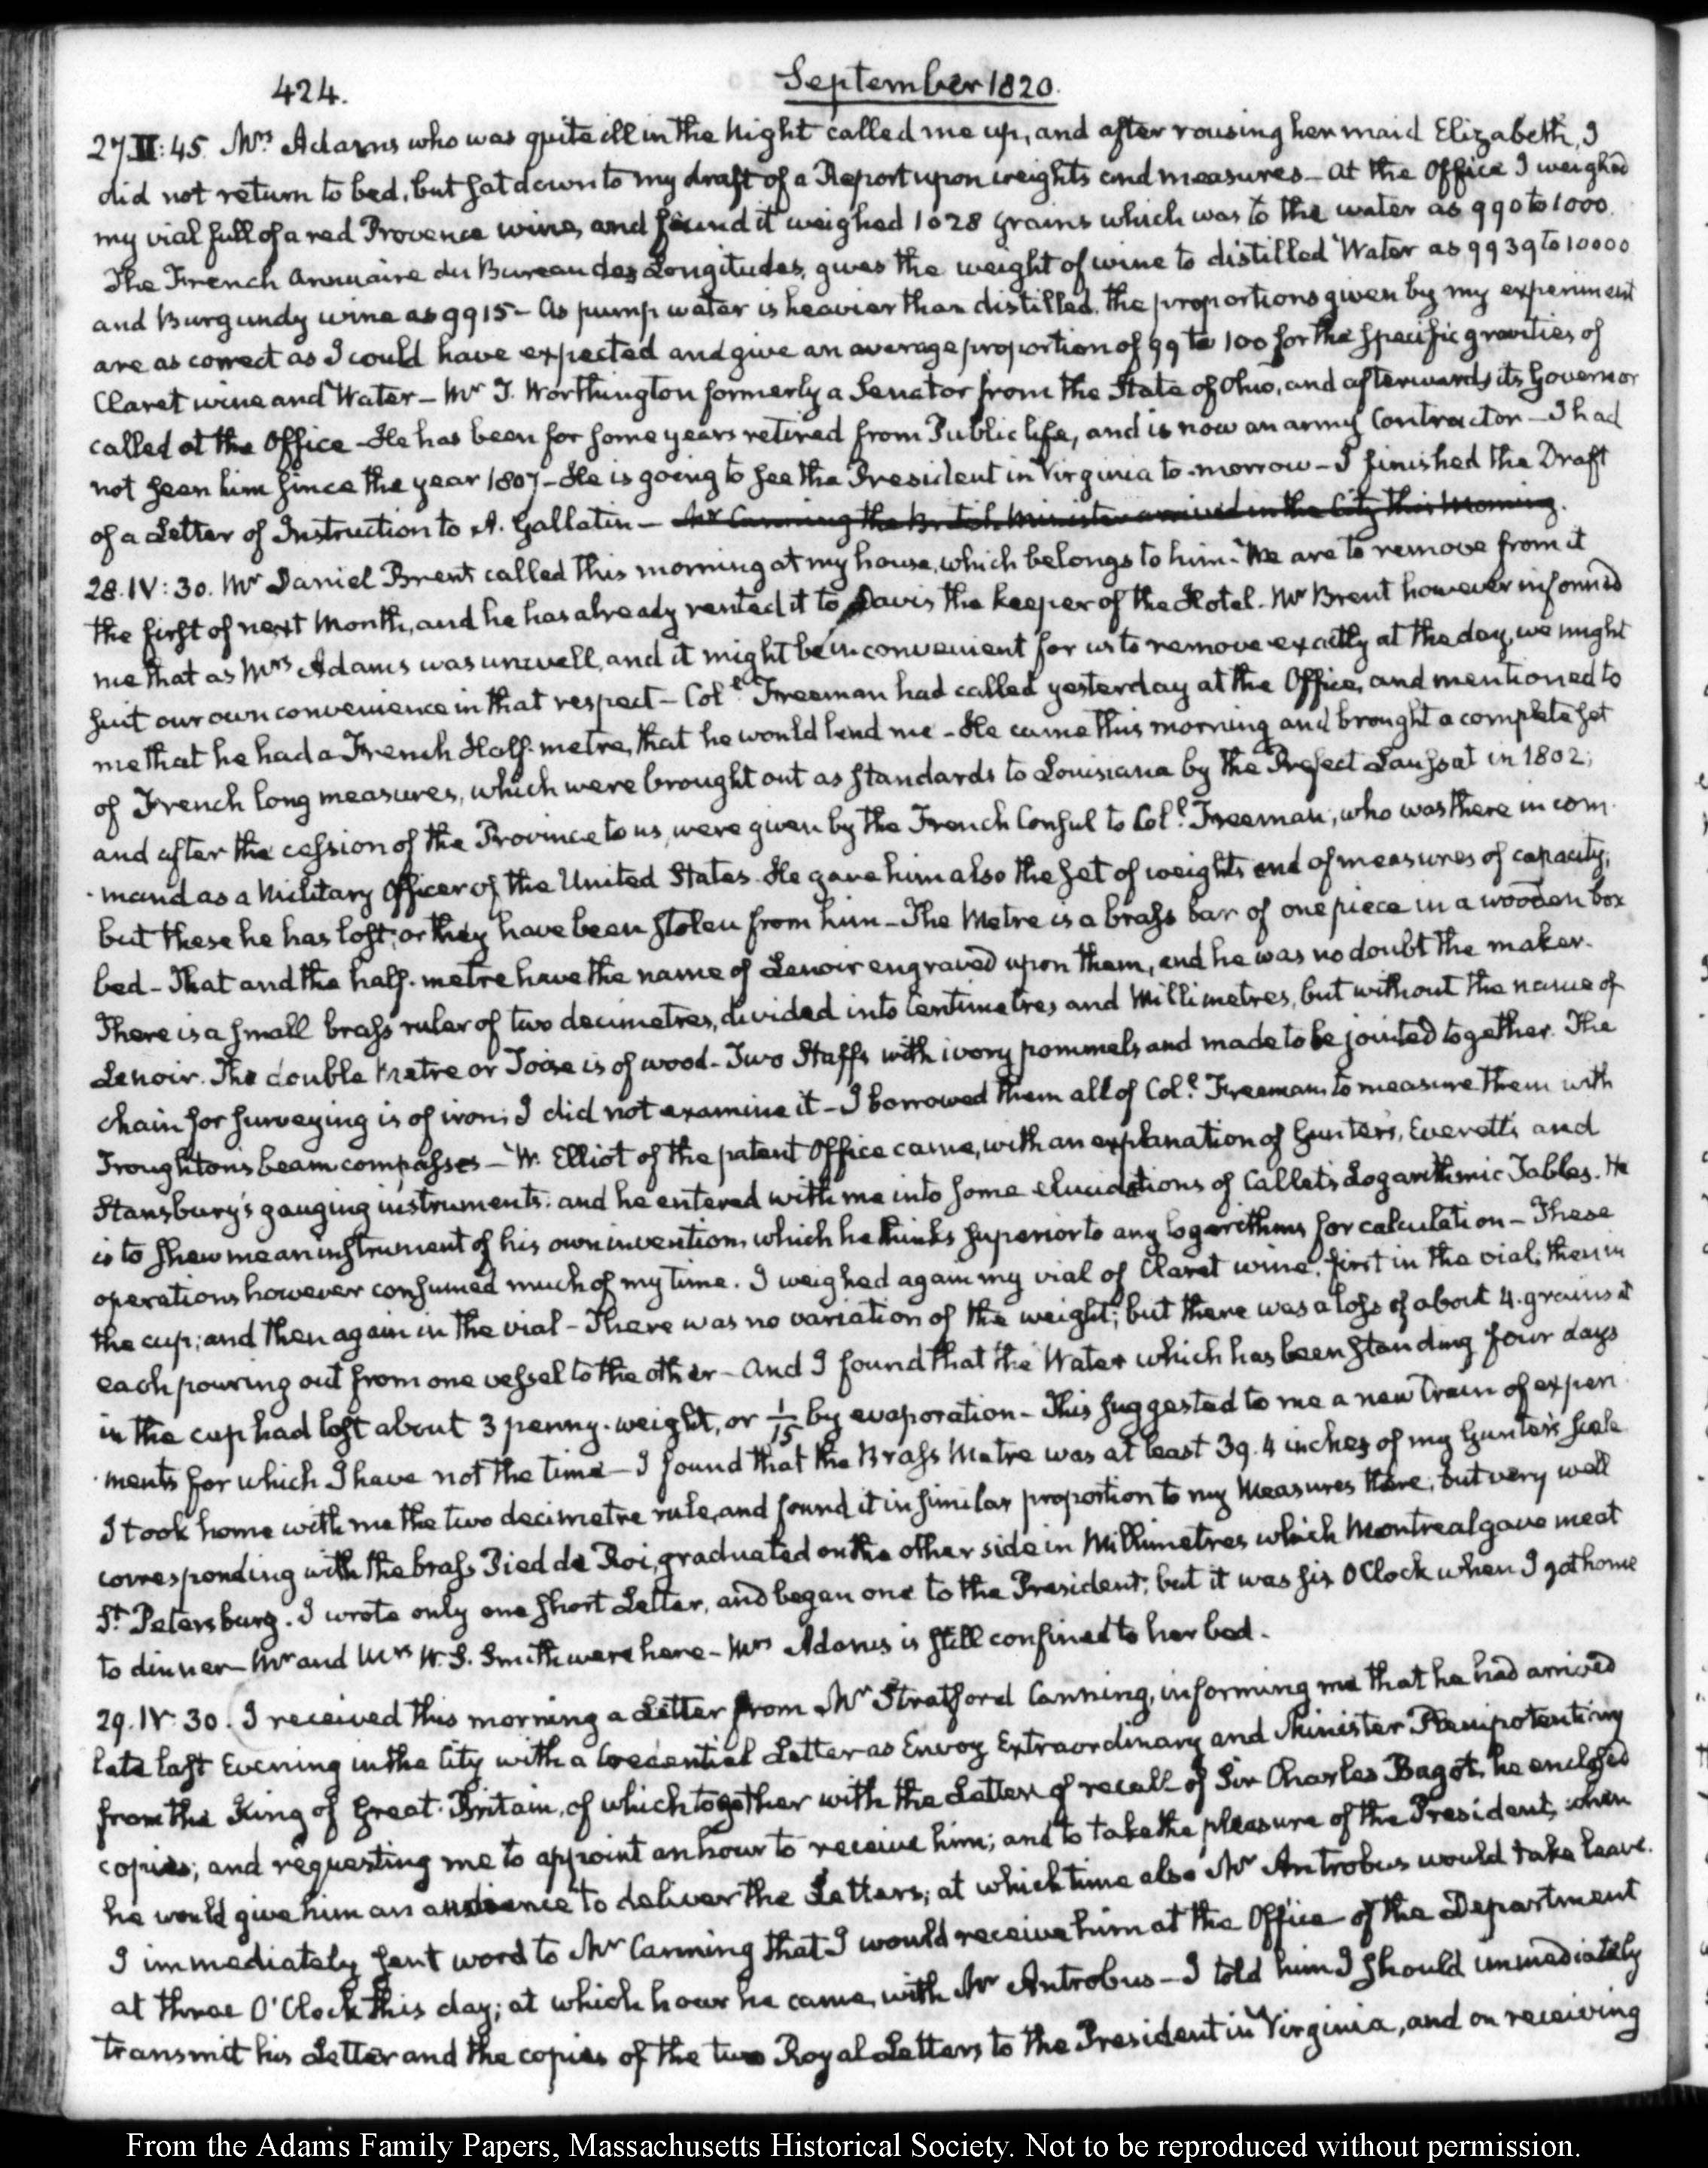 424.
September 1820.
27. II: 45. Mrs Adams who was quite ill in the Night called me up, and after rousing her maid Elizabeth, I
did not return to bed, but sat down to my draft of a Report upon weights and measures — At the Office I weighed
my vial full of a red Provence wine, and found it weighed 1028 grains which was to the water as 990 to 1000.
The French Annuaire du Bureau des Longitudes, gives the weight of wine to distilled Water as 9939 to 10000
and Burgundy wine as 9915 — As pump water is heavier than distilled, the proportions given by my experiment
are as correct as I could have expected and give an average proportion of 99 to 100 for the specific gravities of
Claret wine and Water — Mr T. Worthington formerly a Senator from the State of Ohio, and afterwards its Governor
called at the Office — He has been for some years retired from Public life, and is now an army Contractor — I had
not seen him since the year 1807 — He is going to see the President in Virginia to-morrow — I finished the Draft
of a Letter of Instruction to A. Gallatin — Mr Canning the British Minister arrived in the City this Morning.
28. IV: 30. Mr Daniel Brent called this morning at my house, which belongs to him. We are to remove from it
the first of next Month, and he has already rented it to Davis the keeper of the Hotel. Mr Brent however informed
me that as Mrs Adams was unwell, and it might be inconvenient for us to remove exactly at the day, we might
suit our own convenience in that respect — Coll. Freeman had called yesterday at the Office, and mentioned to
me that he had a French Half-metre, that he would lend me — He came this morning and brought a complete set
of French long measures, which were brought out as standards to Louisiana by the Prefect Laussat in 1802;
and after the cession of the Province to us, were given by the French Consul to Coll. Freeman, who was there in com-
-mand as a Military Officer of the United States. He gave him also the set of weights and of measures of capacity;
but these he has lost; or they have been stolen from him — The Metre is a brass bar of one piece in a wooden box
bed — That and the half-metre have the name of Lenoir engraved upon them, and he was no doubt the maker.
There is a small brass ruler of two decimetres, divided into Centimetres and Millimetres, but without the name of
Lenoir. The double Metre or Toise is of wood — Two Staffs with ivory pommels and made to be jointed together. The
chain for surveying is of iron; I did not examine it — I borrowed them all of Coll. Freeman to measure them with
Troughton's beam compasses — W. Elliot of the patent Office came, with an explanation of Gunter's, Everett's and
Stansbury's gauging instruments; and he entered with me into some elucidations of Callet's Logarithmic Tables. He
is to shew me an instrument of his own invention, which he thinks superior to any logarithms for calculation — These
operations however consumed much of my time. I weighed again my vial of Claret wine; first in the vial; then in
the cup; and then again in the vial — There was no variation of the weight; but there was a loss of about 4. grains at
each pouring out from one vessel to the other — And I found that the Water which has been standing four days
in the cup had lost about 3 penny-weight, or 1/15 by evaporation — This suggested to me a new train of experi-
-ments for which I have not the time — I found that the Brass Metre was at least 39.4 inches of my Gunter's Scale
I took home with me the two decimetre rule, and found it in similar proportion to my Measures there; but very well
corresponding with the brass Pied de Roi, graduated on the other side in Millimetres which Montreal gave me at
St. Petersburg. I wrote only one short Letter, and began one to the President; but it was six O'Clock when I got home
to dinner — Mr and Mrs W. S. Smith were here — Mrs Adams is still confined to her bed.
29. IV. 30. I received this morning a Letter from Mr Stratford Canning, informing me that he had arrived
late last Evening in the City with a Credential Letter as Envoy Extraordinary and Minister Plenipotentiary
from the King of Great-Britain, of which together with the Letter of recall of Sir Charles Bagot, he enclosed
copies; and requesting me to appoint an hour to receive him; and to take the pleasure of the President, when
he would give him an audience to deliver the Letters; at which time also Mr Antrobus would take leave.
I immediately sent word to Mr Canning that I would receive him at the Office of the Department
at three O'Clock this day; at which hour he came, with Mr Antrobus — I told him I should immediately
transmit his Letter and the copies of the two Royal Letters to the President in Virginia, and on receiving
From the Adams Family Papers, Massachusetts Historical Society. Not to be reproduced without permission.